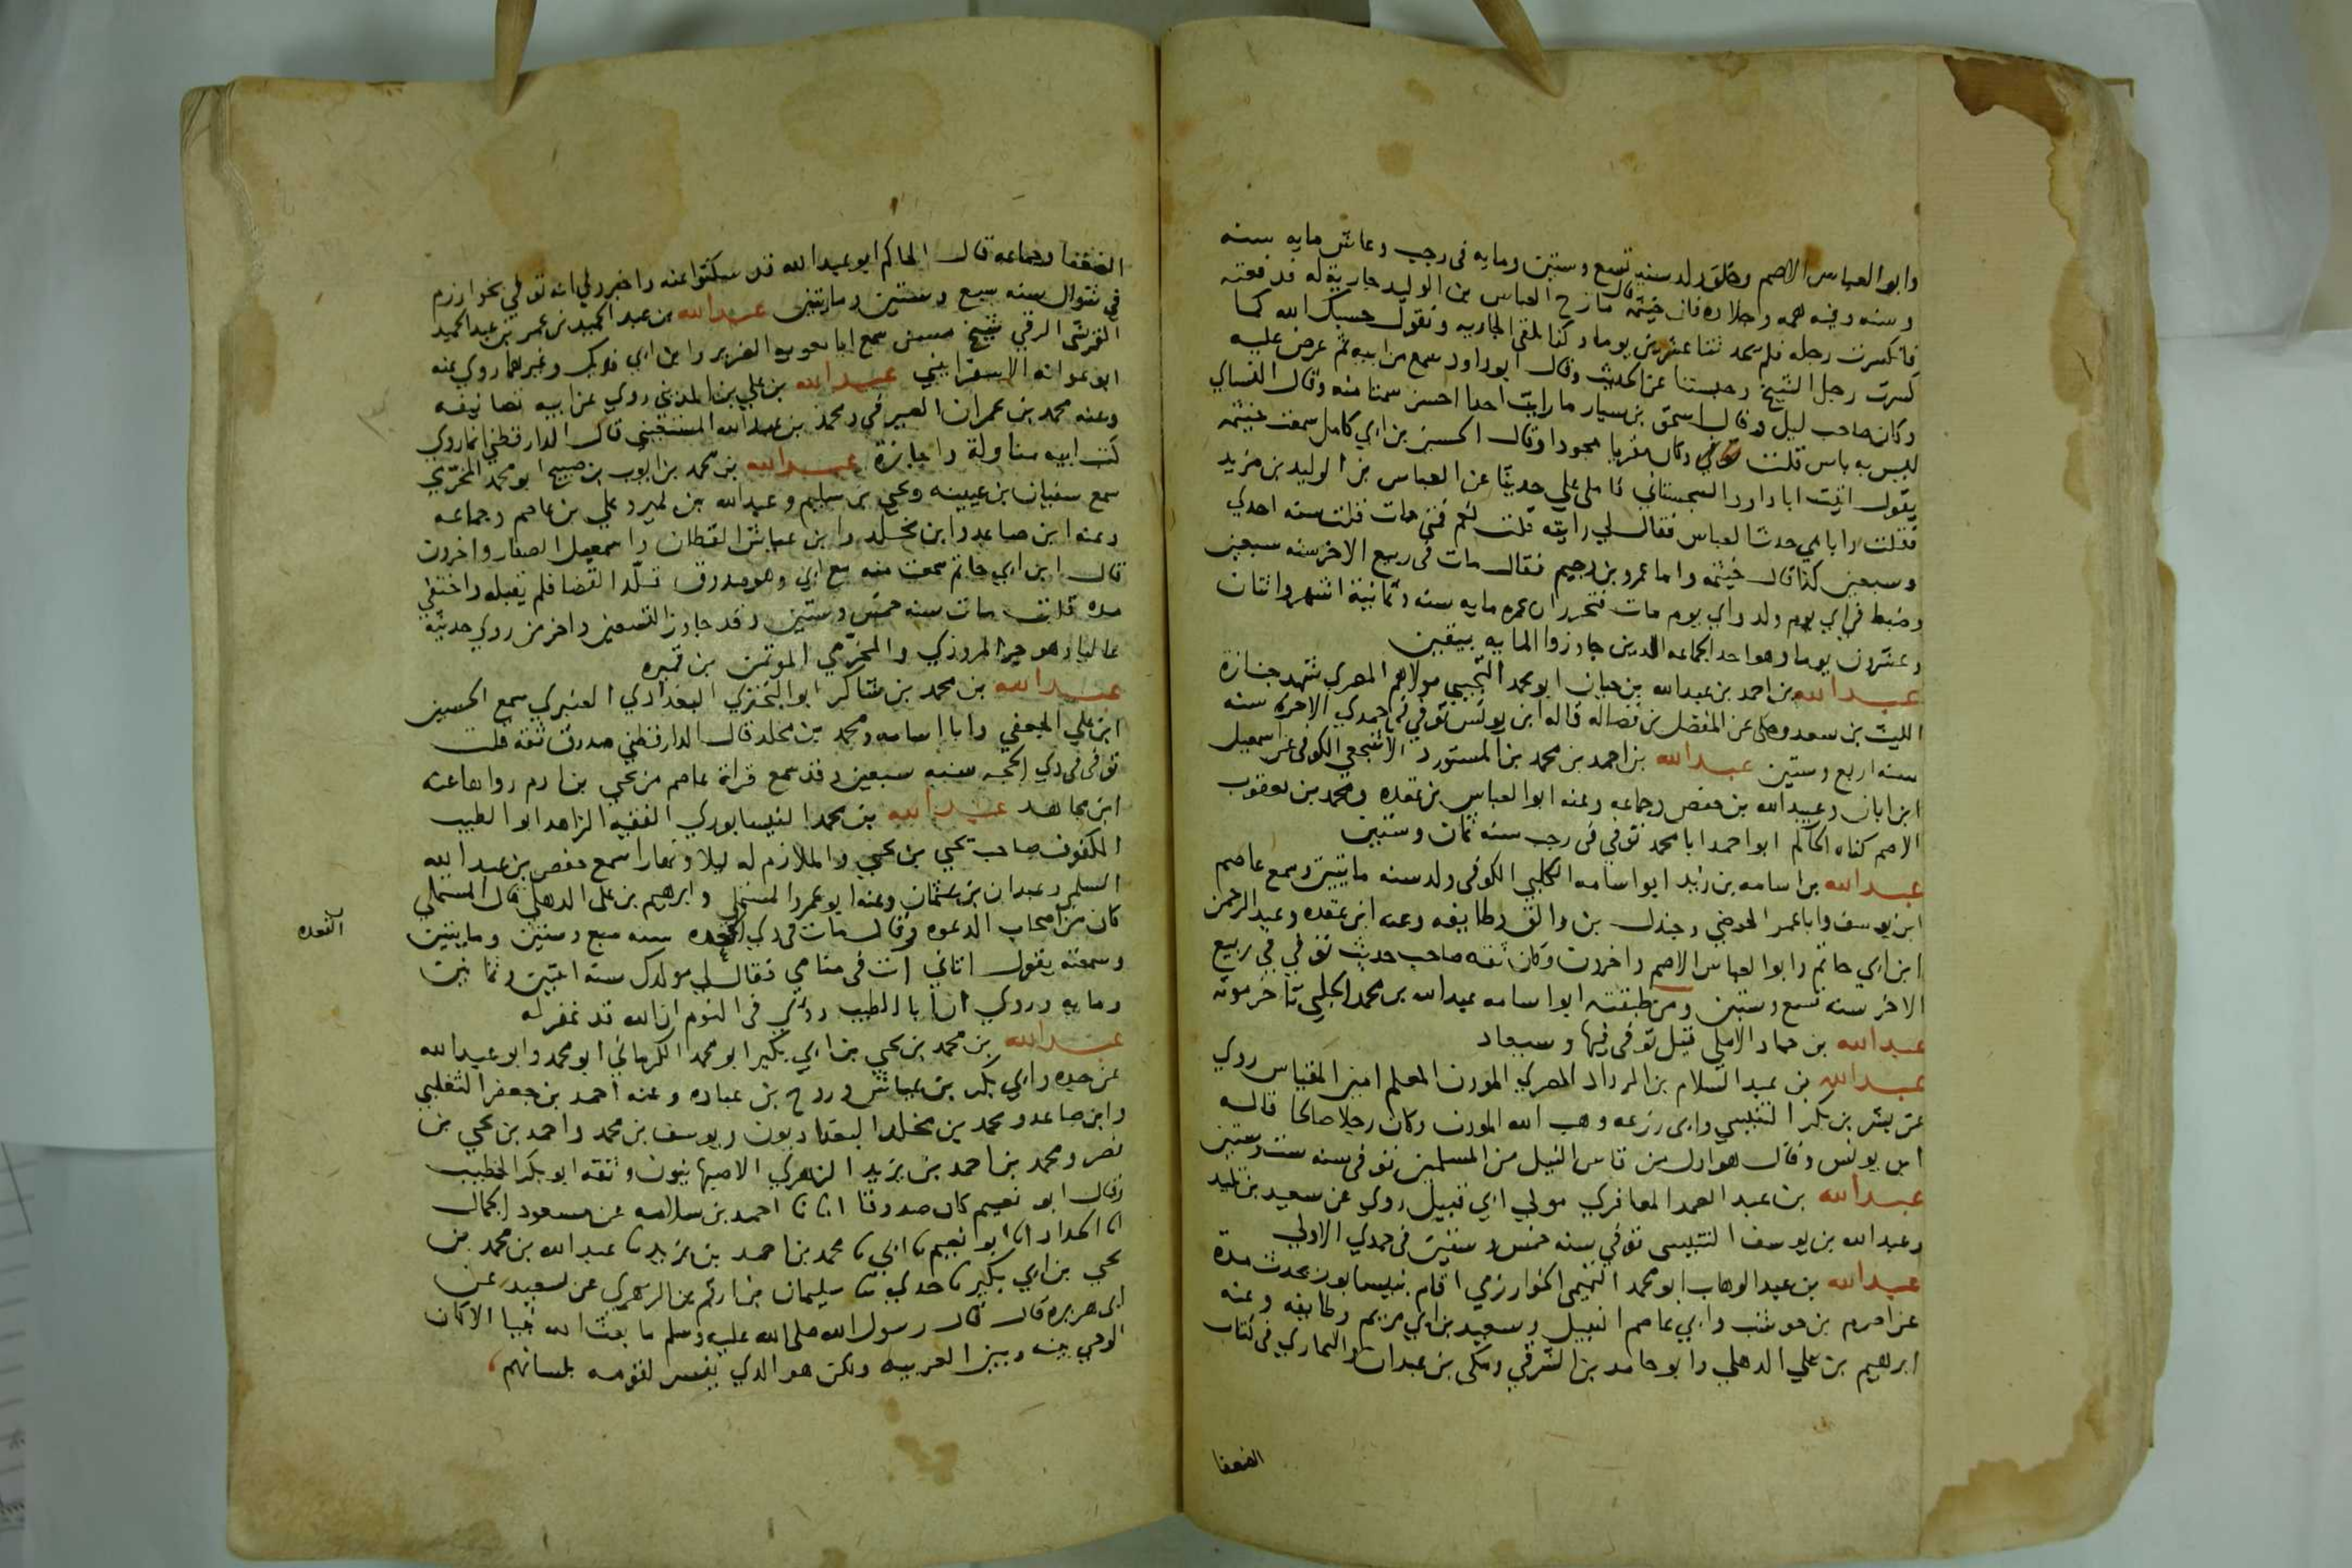 وابو العباس الاصم وخلق ولد سنه تسع وستين ومايه في رجب وعاش مايه سنه
وسنه وفيه همه وجلاده فان خيثمه قال مازح العباس بن الوليد جاريه له فدفعته
فانكسرت رجله فلم يحدثنا عشرين يوما وكنا نلقى الجاريه ونقول حسبك الله كما
كسرت رجل الشيخ وحبستنا عن الحديث وقال ابو داود سمع من ابيه ثم عرض عليه
وكان صاحب ليل وقال اسحق بن سيار ما رايت احدا احسن سمتا منه وقال النساي
ليس به باس قلت وكان مقريا مجودا وقال الحسين بن ابي كامل سمعت خيثمه
يقول اتيت ابا داود السجستاني فاملى علي حديثا عن العباس بن الوليد بن مزيد
فقلت وانا في حدثنا العباس فقال لي رايته قلت نعم فمتى مات قلت سنه احدي
وسبعين كذا قال خيثمه واما عمرو بن دحيم فقال مات في ربيع الاخر سنه سبعين
وضبط في اي يوم ولد واي يوم مات فتحرر ان عمره مايه سنه وثمانية اشهر واثنان
وعشرون يوما وهو احد الجماعه الذين جاوزوا المايه بيقين
عبد الله بن احمد بن عبد الله بن حيان ابو محمد التجيبي مولاهم المصري شهد جنازة
الليث بن سعد وحكى عن المفضل بن فضاله قاله ابن يونس توفي في جمدي الاخره سنه
سنه اربع وستين عبد الله بن احمد بن محمد بن المستورد الاشجعي الكوفي عن اسمعيل
ابن ابان وعبيد الله بن حفص وجماعه وعنه ابو العباس بن عقده ومحمد بن يعقوب
الاصم كناه الحاكم ابو احمد ابا محمد توفي في رجب سنه ثمان وستين
عبد الله بن اسامه بن زيد ابو اسامه الكلبي الكوفي ولد سنه مايتين وسمع عاصم
ابن يوسف وابا عمر الحوضي وجندل بن والق وطايفه وعنه ابن عقده وعبد الرحمن
ابن ابي حاتم وابو العباس الاصم واخرون وكان ثقه صاحب حديث توفي في ربيع
الاخر سنه تسع وستين ومن طبقته ابو اسامه عبد الله بن محمد الحلبي تاخر موته
عبد الله بن حماد الاملي قيل توفي فيها وسيعاد
عبد الله بن عبد السلام بن الرداد المصري الموذن المعلم امين المقياس روي
عن بشر بن بكر التنيسي وابي زرعه وهب الله الموذن وكان رجلا صالحا قاله
ابن يونس وقال هو اول من قاس النيل من المسلمين توفي سنه ست وستين
عبد الله بن عبد الصمد المعافري مولي ابي قبيل روي عن سعيد بن تليد
وعبد الله بن يوسف التنيسي توفي سنه خمس وستين في جمدي الاولي
عبد الله بن عبد الوهاب ابو محمد التميمي الخوارزمي اقام بنيسابور يحدث مدة
عن اصرم بن حوشب وابي عاصم النبيل وسعيد بن ابي مريم وطايفه وعنه
ابرهيم بن علي الذهلي وابو حامد بن الشرقي ومكي بن عبدان والبخاري في كتاب
الضعفا
الضعفا وجماعه قال الحاكم ابو عبد الله قد سكتوا عنه واخبروني انه توفي بخوارزم
في شوال سنه سبع وستين ومايتين عبد الله بن عبد الحميد بن عمر بن عبد الحميد
القرشي الرقي شيخ مسن سمع ابا معويه الضرير وابن ابي فديك وغيرهما روي عنه
ابو عوانه الاسفرايني عبد الله بن علي بن المديني روي عن ابيه تصانيفه
وعنه محمد بن عمران الصيرفي ومحمد بن عبد الله المستعيني قال الدارقطني انما روي
كتب ابيه مناولة واجازة عبد الله بن محمد بن ايوب بن صبيح ابو محمد المخرمي
سمع سفيان بن عيينه ويحيي بن سليم وعبد الله بن نمير وعلي بن عاصم وجماعه
وعنه ابن صاعد وابن مخلد وابن عياش القطان واسمعيل الصفار واخرون
قال ابن ابي حاتم سمعت منه مع ابي وهو صدوق قلد القضا فلم يقبله واختفي
مده قلت مات سنه خمس وستين وقد جاوز التسعين واخر من روي حديثه
عاليا هو جبر المروزي والمخرمي الموتمن بن قميره
عبد الله بن محمد بن شاكر ابو البختري البغدادي العنبري سمع الحسين
ابن علي الجعفي وابا اسامه ومحمد بن مخلد قال الدارقطني صدوق ثقه قلت
توفي في ذي الحجه سنه سبعين وقد سمع قراة عاصم من يحيي بن ادم رواها عنه
ابن مجاهد عبد الله بن محمد النيسابوري الفقيه الزاهد ابو الطيب
المكفوف صاحب يحيي بن يحيي والملازم له ليلا ونهارا سمع حفص بن عبد الله
السلمي وعبدان بن عثمان وعنه ابو عمرو المستملي وابرهيم بن علي الذهلي قال المستملي
كان من اصحاب الدعوه وقال مات في ذي سنه سبع وستين ومايتين
القعده
وسمعته يقول اتاني ات في منامي فقال لي مولدك سنه اثنين وثمانين
ومايه وروي ان ابا الطيب روي في النوم ان الله قد غفر له
عبد الله بن محمد بن يحيي بن ابي بكير ابو محمد الكرماني ابو محمد وابو عبد الله
عن جده وابي بكر بن عياش وروح بن عباده وعنه احمد بن جعفر الثعلبي
وابن صاعد ومحمد بن مخلد البغداديون ويوسف بن محمد واحمد بن يحيي بن
نصر ومحمد بن احمد بن يزيد الزهري الاصبهانيون وثقه ابو بكر الخطيب
وقال ابو نعيم كان صدوقا انبانا احمد بن سلامه عن مسعود الجمال
انا الحداد انا ابو نعيم نا ابي نا محمد بن احمد بن يزيد نا عبد الله بن محمد بن
يحيي بن ابي بكير نا جدي نا سليمان بن ارقم عن الزهري عن سعيد عن
ابي هريره قال قال رسول الله صلى الله عليه وسلم ما بعث الله نبيا الا كان
الوحي بينه وبين العربيه ولكن هو الذي يفسر لقومه بلسانهم